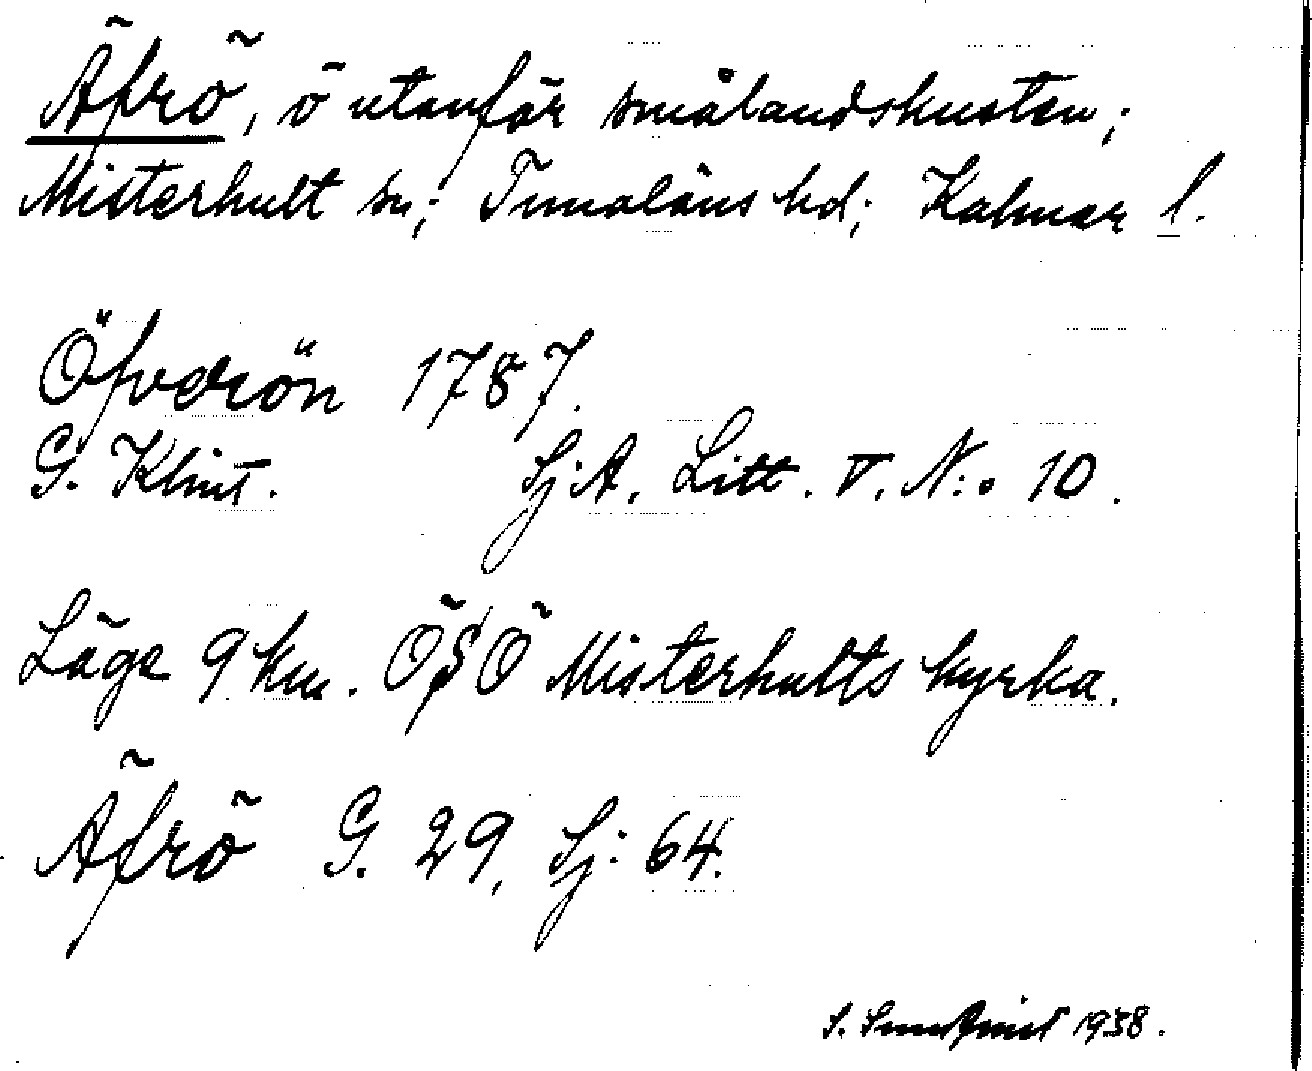 Äfrö, ö utanför smålandskusten;
Misterhult sn; Tunaläns hd; Kalmar l.
Öfverön 1787.
G. Klint. Sj A. Litt. V. N:o 10.
Läge 9 km. ÖSÖ Misterhults kyrka.
Äfrö G. 29, Sj: 64.
S. Sundqvist 1938.